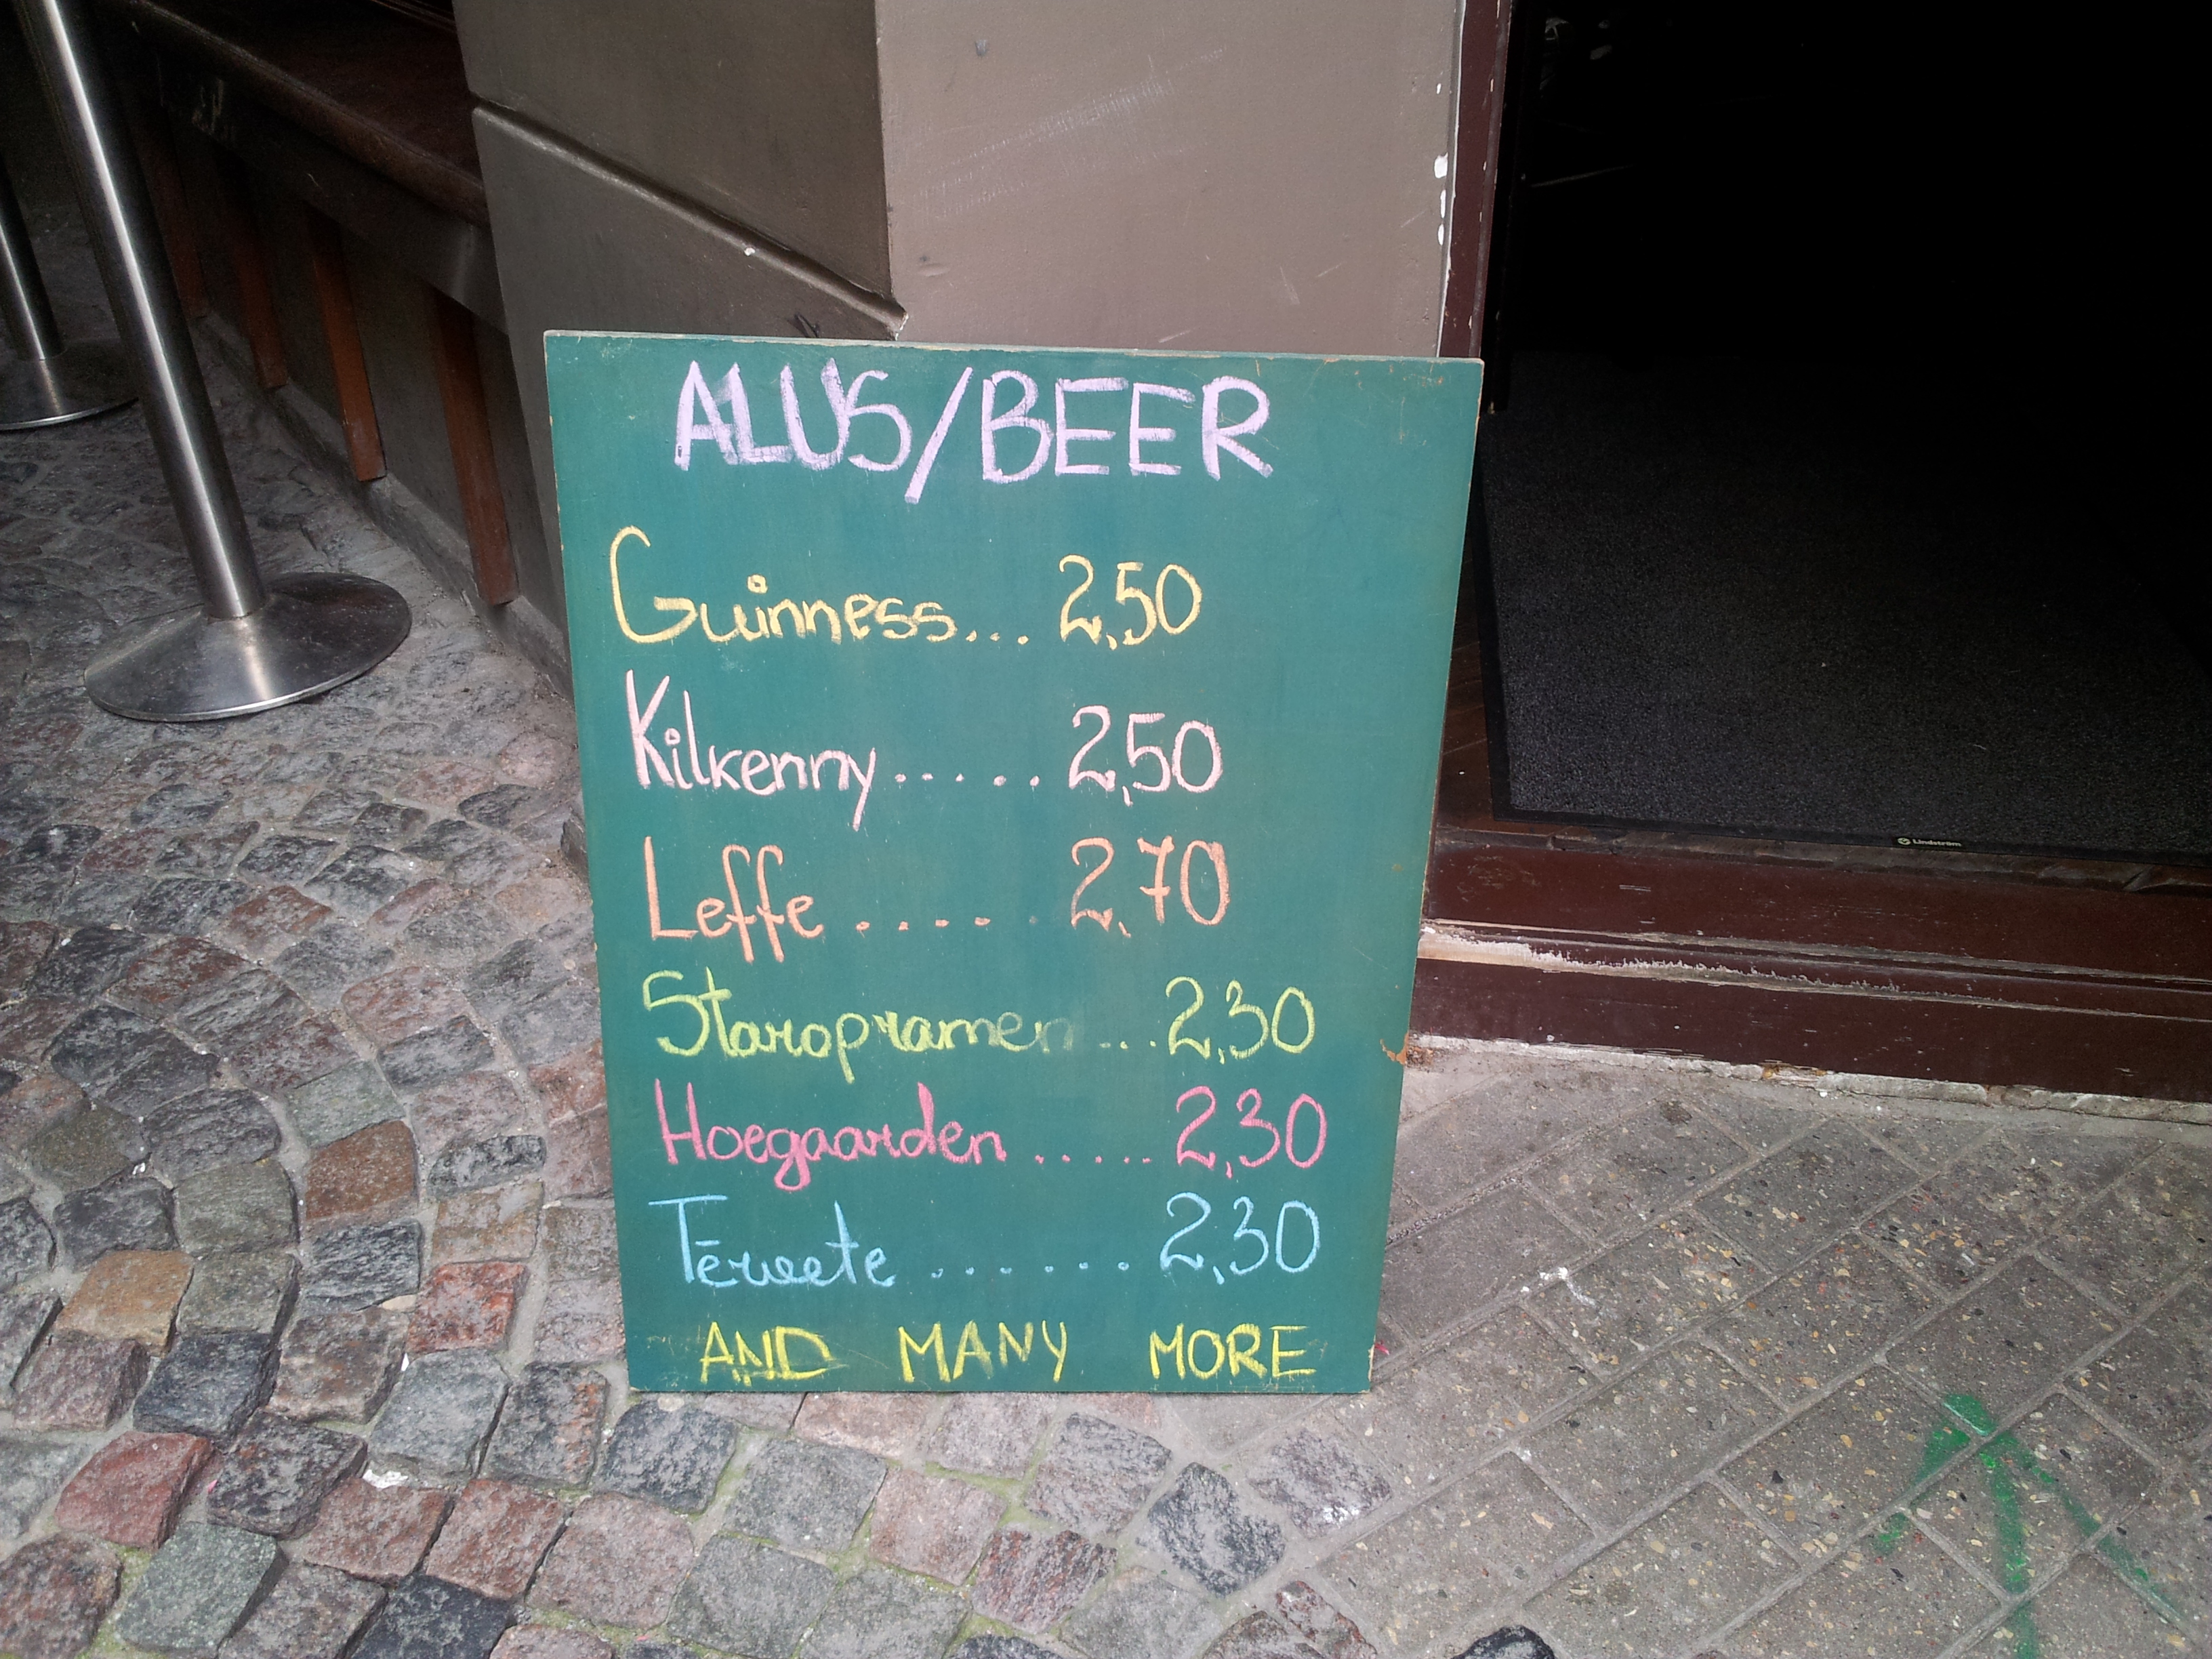 ALUS/BEER
Guinness... 2,50
Kilkenny..... 2,50
Leffe ..... 2,70
Staropramen ... 2,30
Hoegaarden ..... 2,30
Tērvete ....... 2,30
AND MANY MORE
Lindström